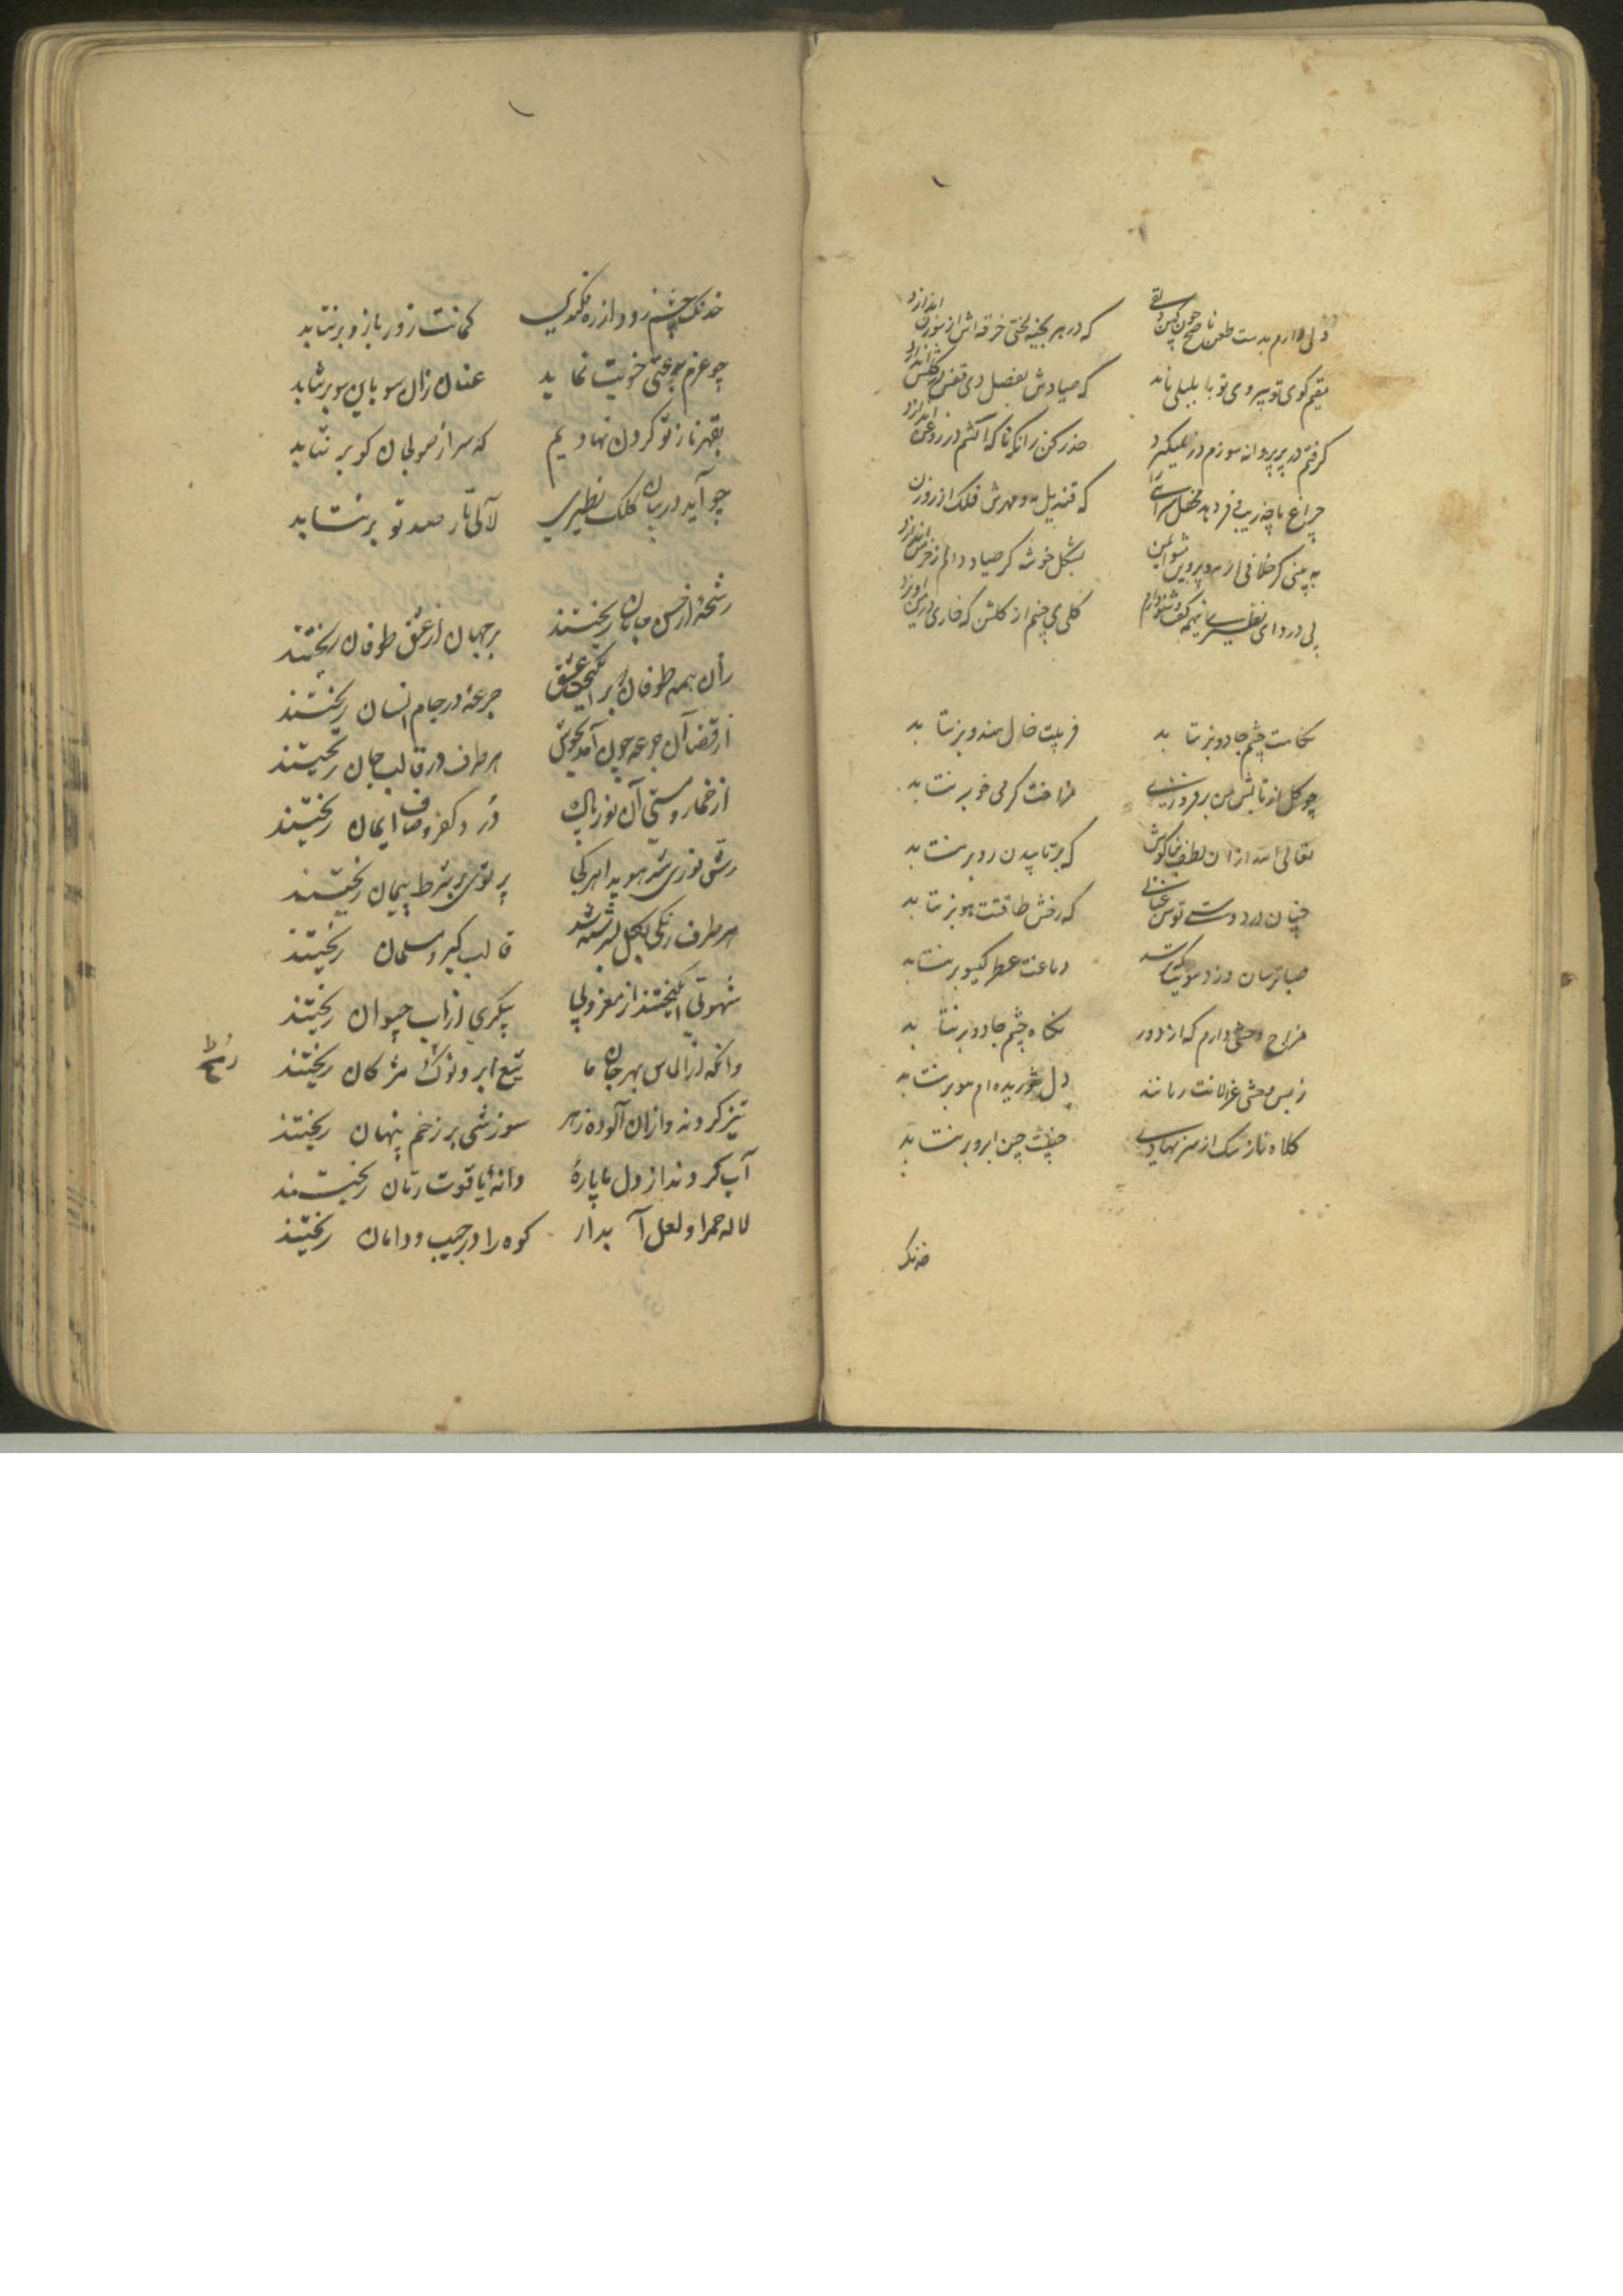 دلی دارم بدست طعن ناصح چون کهن دلقی که در هر بخیه لختی خرقه اش از سوزن اندازد
مقیم کوی تو بیروی تو با بلبلی ماند که صیادش بفصل دی قفس در گلشن اندازد
گرفتم در پر پروانه سوزم در نمیگیرد حذر کن زانکه ناگه آتشم در روغن اندازد
چراغ ما چه زیب و فر دهد محفل سرائی را که قندیل مه و مهرش فلک از روزن
به بینی گر خلافی از مه و پروین مشو ایمن بشکل خوشه گر صیاد دانم ز خرمن اندازد
پی درد ای نظیری نیمه کف گلی می چینم از گلشن که خاری در من آویزد
نگاهت چشم جادو برنتابد فریبت خال هندو برنتابد
چو گل از تابش من برفروزی مزاجت گرمی خو برنتابد
تعالی الله از آن لطف بناگوش که برتابیدن رو برنتابد
چنان در دوستی توسن عنانی که رخش طاقتت هو برنتابد
صبا ترسان وزد سویت دماغت عطر گیسو برنتابد
مزاج وحشی دارم که از دور نگاه چشم جادو برنتابد
ز بس وحشی غزالانت رمانند دل شوریده ام مو برنتابد
کلاه ناز سبک از سر نهادی جبینت چین ابرو برنتابد
خدنگ
خدنگ چشم زود از ره فکندی کمانت زور بازو برنتابد
چو عزم بوعتی خویت نماید عنان زان سو باین سو برنتابد
بقهر ناز تو گردن نهادیم که سر از صولجان گو برنتابد
چو آید در بیان کلک نظیری لآلی تار صمد تو برنتابد
رشحهٔ از حسن جانان ریختند بر جهان از عشق طوفان ریختند
زان همه طوفان بر انگیخت عشق جرعهٔ در جام انسان ریختند
از قضا آن جرعه چون آمد بجوش هر طرف در قالب جان ریختند
از خمار و مستی آن نور پاک درد کفر و صاف ایمان ریختند
رش نوری شد هویدا هر کجا پرتوی بر شرط پیمان ریختند
هر طرف رنگی بگل بسرشته شد قالب گبر و مسلمان ریختند
شهوتی انگیختند از مغز و پی پیکری از آب حیوان ریختند
وانگه از الماس بهر جان ما تیغ ابرو نوک مژگان ریختند
تیز کردند و ازان آلوده زهر سوزشی بر زخم پنهان ریختند
آب کردند از دل ما پارهٔ دانهٔ یاقوت رمان ریختند
لاله حمرا و لعل آبدار کوه را در جیب و دامان ریختند